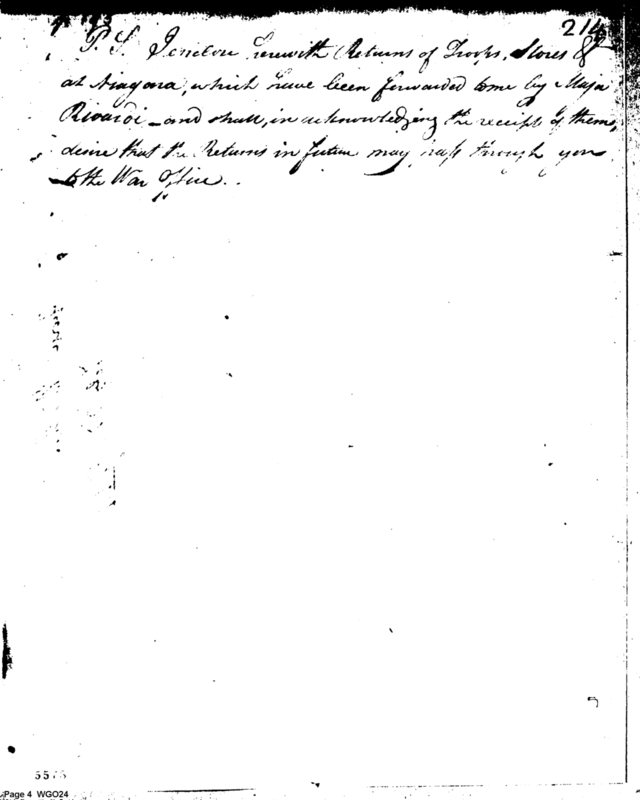 214
P.S. I enclose herewith Returns of Troops, Stores &
at Niagara, which have been forwarded to me by Major
Rivardi – and shall, in acknowledging the receipt of them,
desire that the Returns in future may pass through you
to the War Office.
557
Page 4 WGO24